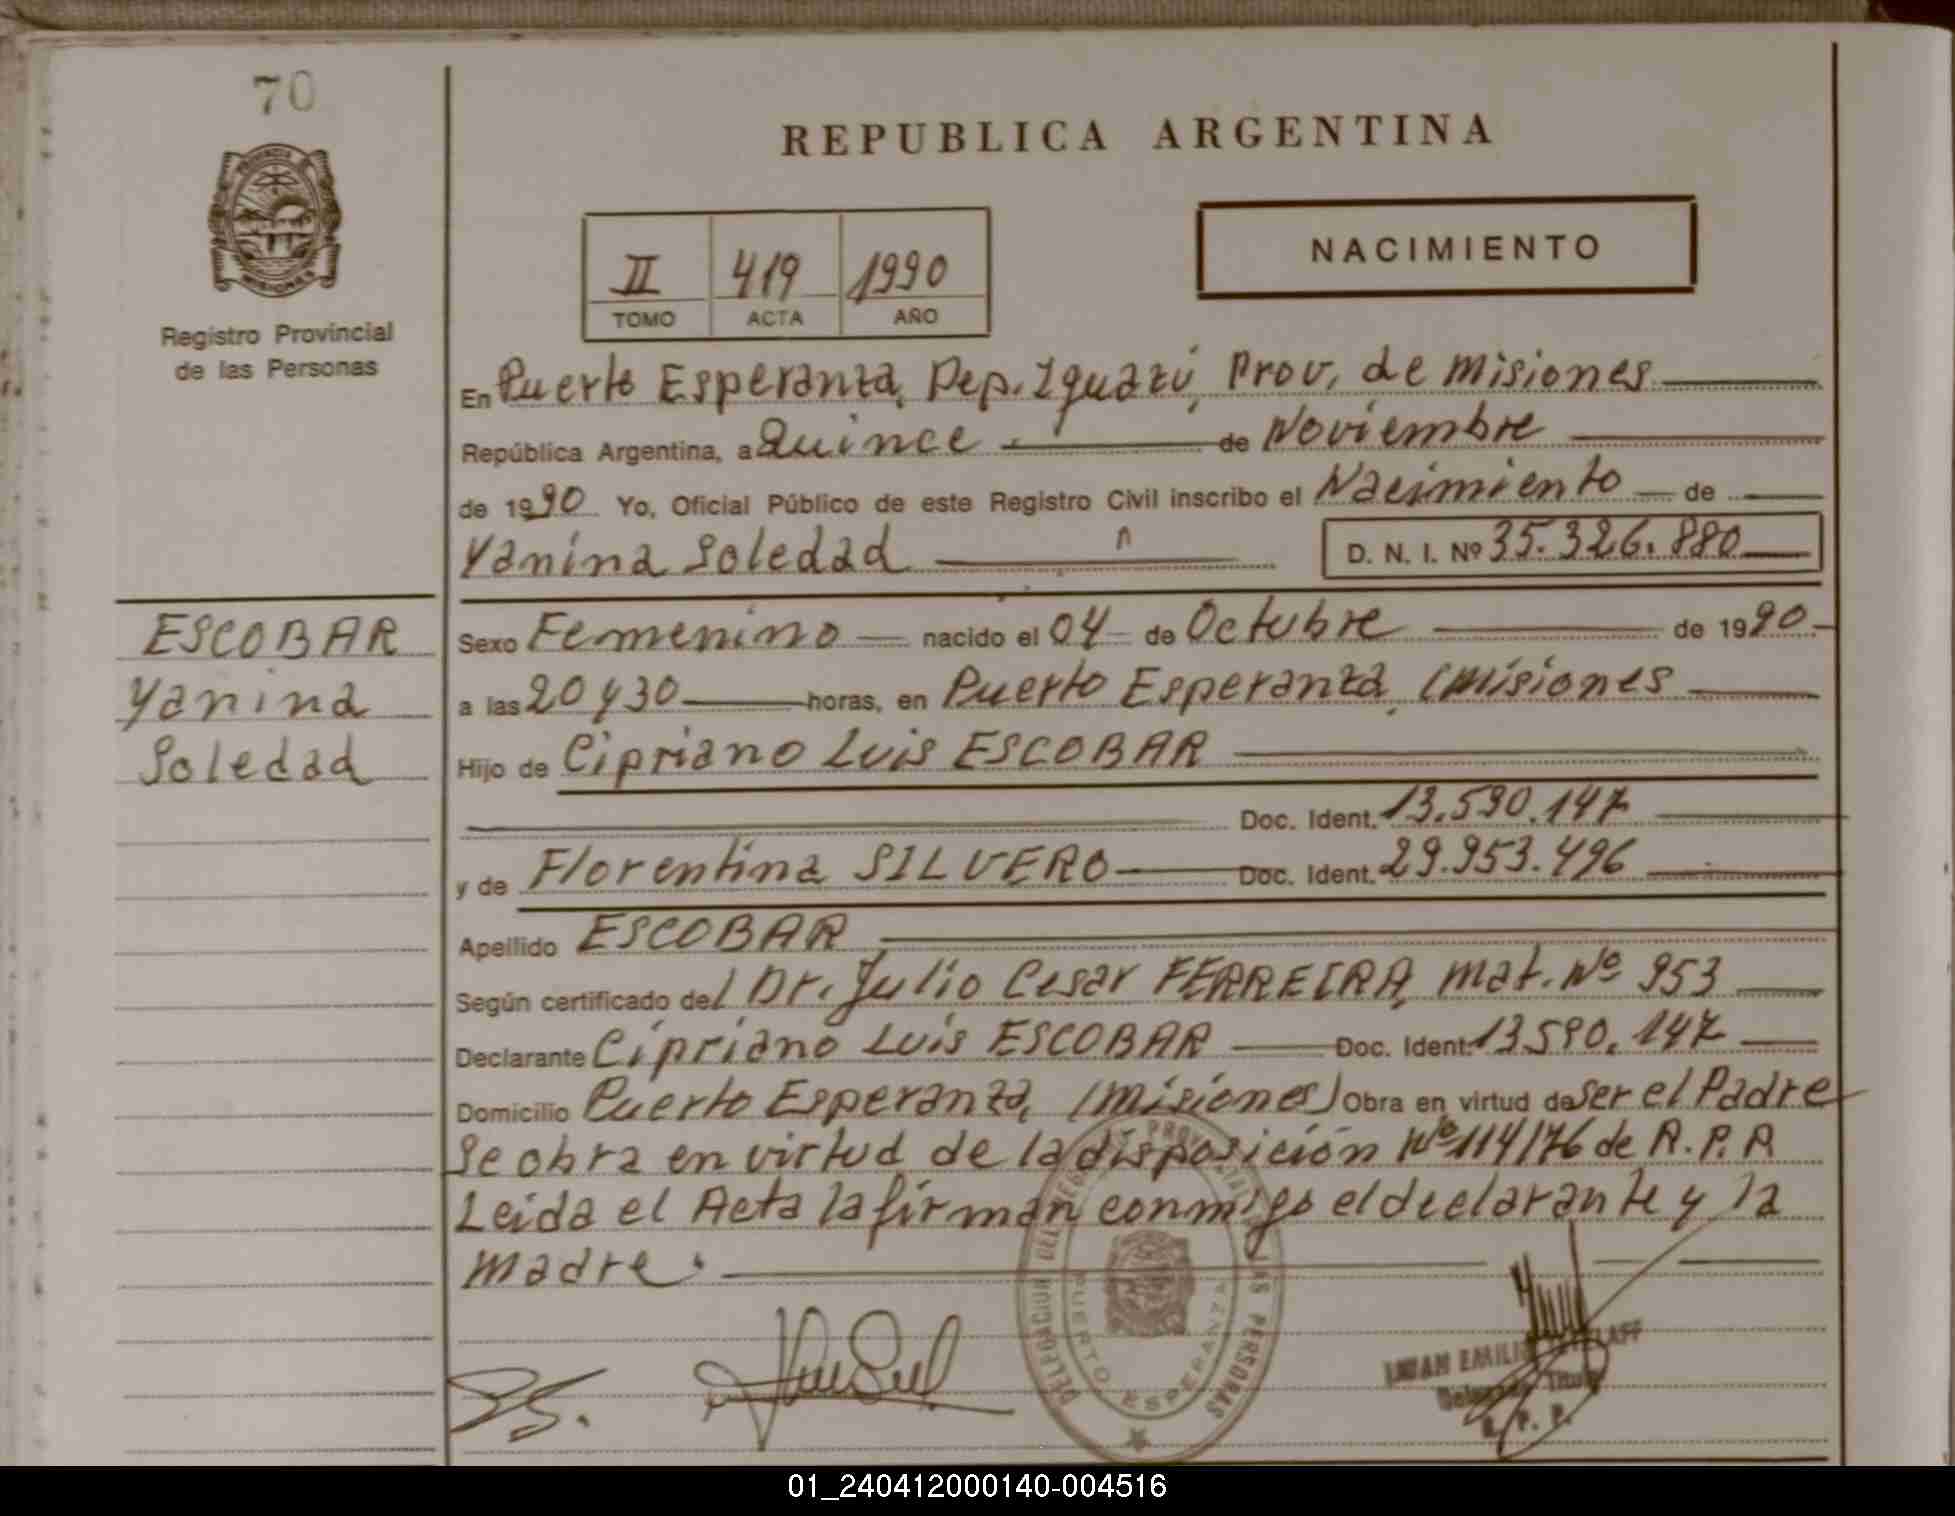 70
PROVINCIA DE
MISIONES
Registro Provincial
de las Personas
REPUBLICA ARGENTINA
II 419 1990
TOMO ACTA AÑO
NACIMIENTO
En Puerto Esperanza, Dep. Iguazú, Prov. de Misiones
República Argentina, a Quince de Noviembre
de 1990 Yo, Oficial Público de este Registro Civil inscribo el Nacimiento de
Yanina Soledad D. N. I. Nº 35.326.880
ESCOBAR
Yanina
Soledad
Sexo Femenino nacido el 04 de Octubre de 1990
a las 20 y 30 horas, en Puerto Esperanza, (Misiones
Hijo de Cipriano Luis ESCOBAR
Doc. Ident. 13.590.147
y de Florentina SILVERO Doc. Ident. 29.953.496
Apellido ESCOBAR
Según certificado del Dr. Julio Cesar FERREIRA, Mat. Nº 953
Declarante Cipriano Luis ESCOBAR Doc. Ident. 13.590.147
Domicilio Puerto Esperanza, (Misiones) Obra en virtud de ser el Padre
Se obra en virtud de la disposición Nº 114/76 de R.P.P.
Leida el Acta la firman conmigo el declarante y la
madre.
DELEGACION DEL REGISTRO PROVINCIAL DE LAS PERSONAS
PUERTO ESPERANZA
EMILIO
Titular
R. P. P.
01_240412000140-004516